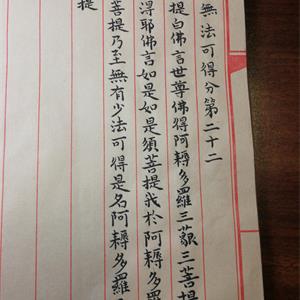 無法可得分第二十二
提白佛言世尊佛得阿耨多羅三藐三菩提
得耶佛言如是如是須菩提我於阿耨多羅
菩提乃至無有少法可得是名阿耨多羅
提